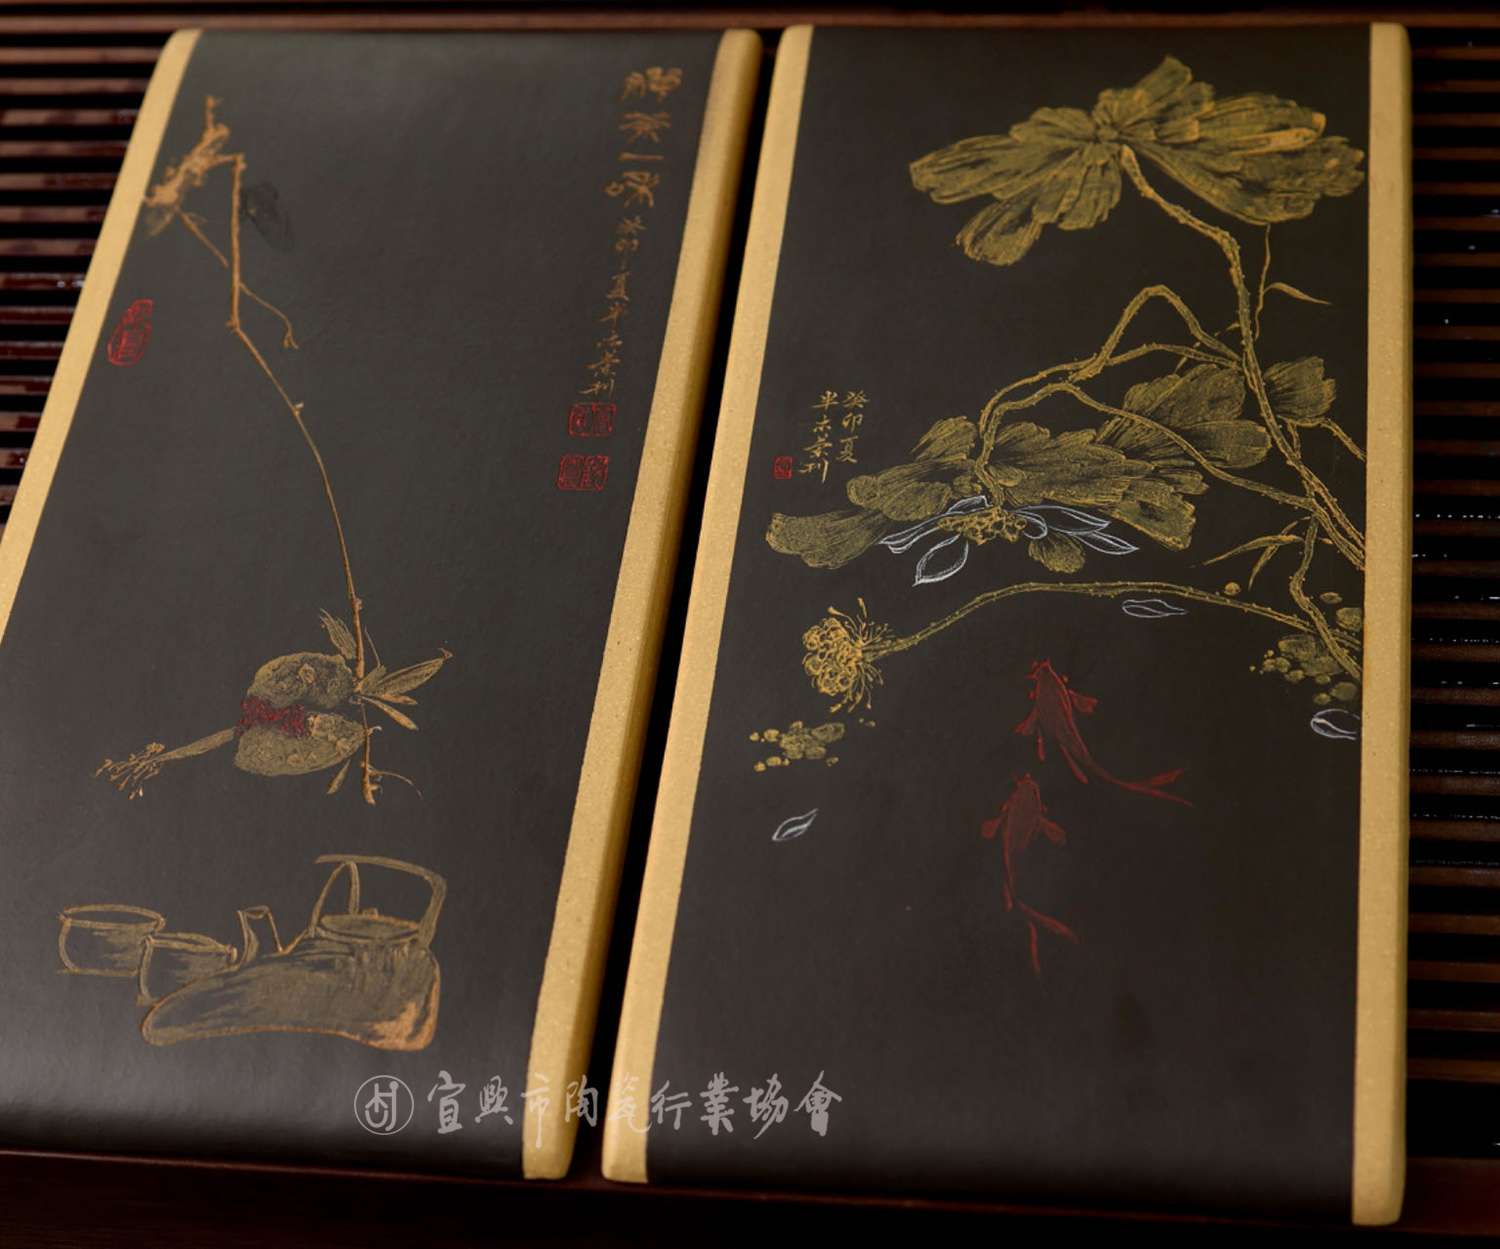 禪茶一味
癸卯夏半木景刊
癸卯夏
半木景刊
宜興市陶瓷行業協會